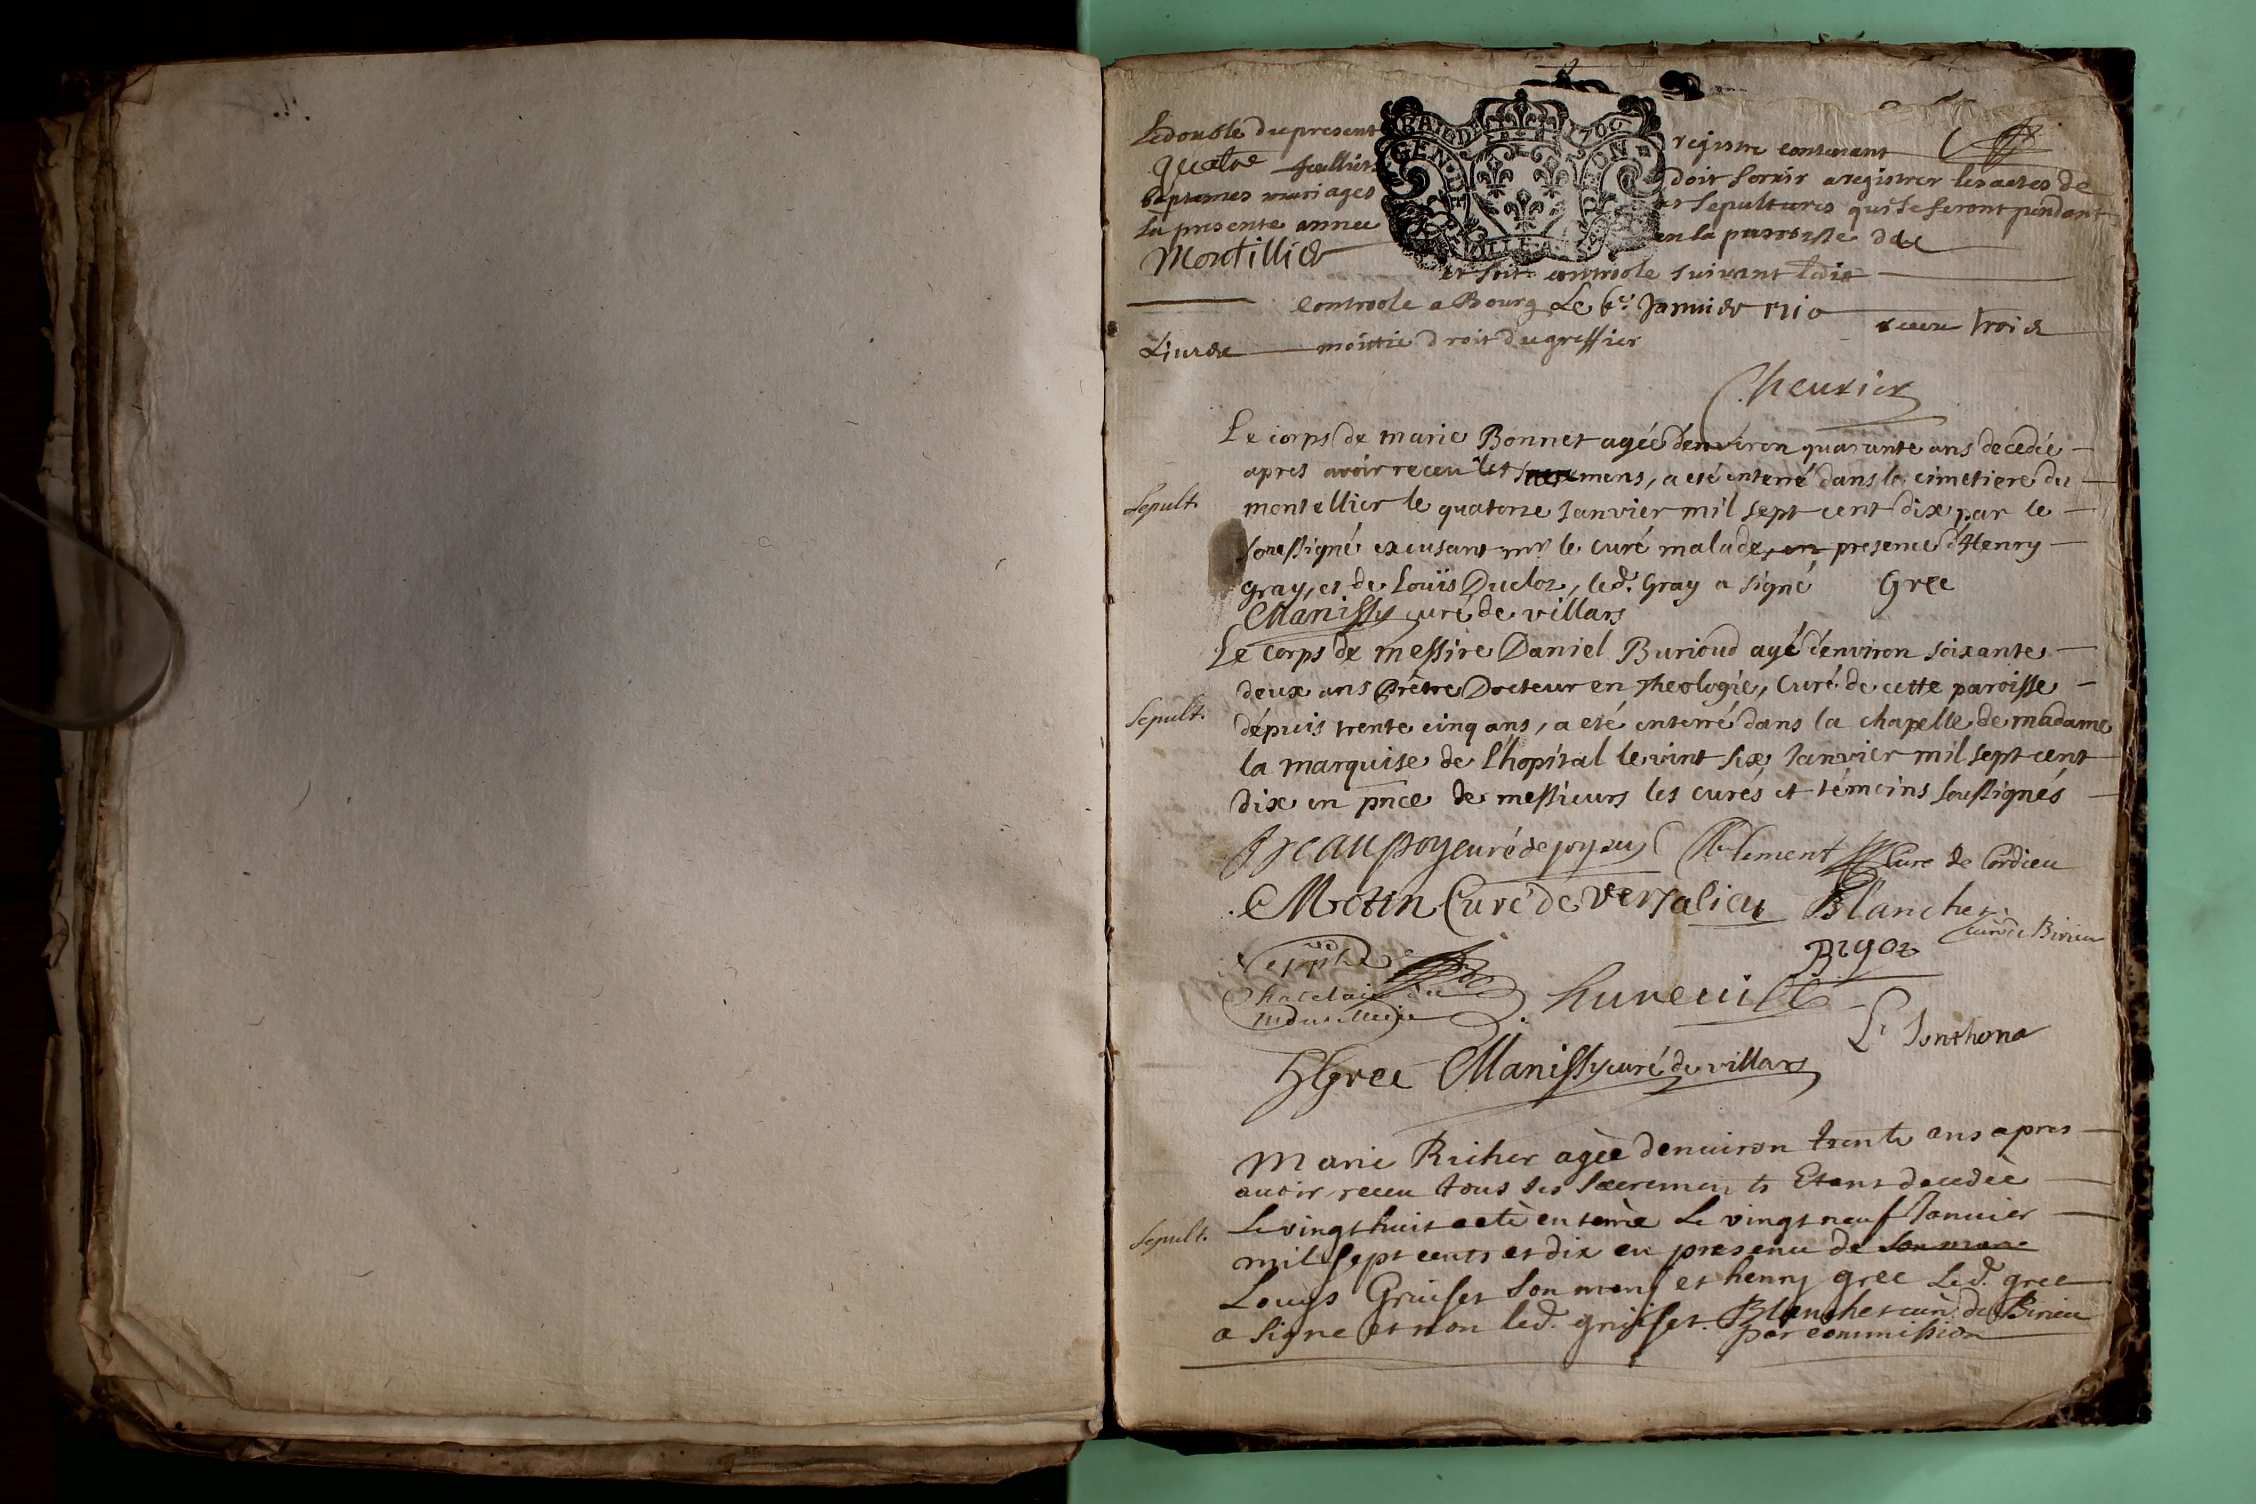 Le double du present registre contenant
quatre feulliets doit servir a registrer les actes de
baptemes mariages et sepultures qui se feront pendant
la presente année en la paroisse de
Montillier
et soit controole suivant ledit
Controole a Bourg Le 6e Januier 1710 receu trois
Liures moittie droit du greffier
Cheurier
Le corps de marie Bonnet agée d'environ quarante ans decedée
apres avoir receu les sacremens, a eté enterré dans le cimetiere du
Sepult.
montellier le quatorze Janvier mil sept cent dix par le
soussigné excusant mr le curé malade, en presence d'Henry
gray, et de Louïs Ducloz, led. Gray a signé Gree
Manissy curé de villars
Le Corps de messire Daniel Burioud agé d'environ soixante
deux ans Prêtre Docteur en Theologie, Curé de cette paroisse
Sepult.
dépuis trente cinq ans, a eté enterré dans la chapelle de madame
la marquise de l'hopital le vint six Janvier mil sept cent
dix en pnce de messieurs les curés et témoins soussignés
curé de joyeu Clement Cure de Cordieu
Motin Curé de Versalieu Blanchet
curé de Birieu
Bigoz
Chatelain du
L. Jonthona
H Gree Manissy curé de villars
Marie Richer agèe denuiron trente ans apres
auoir receu tous ses sacrements Etant decedèe
Sepult.
Le vingt huit a etè enterrèe Le vingt neuf Januier
mil sept cents et dix en presence de son mary
Louys Gruiset son mary et henry gree Led. gree
a signe et non led. gruiset. Blanchet curè de Birieu
par commission